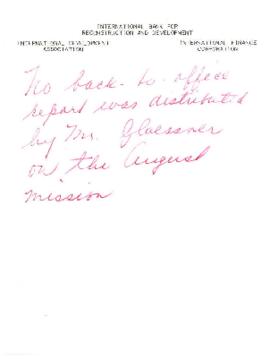 INTERNATIONAL BANK FOR
RECONSTRUCTION AND DEVELOPMENT
INTERNATIONAL DEVELOPMENT
ASSOCIATION
INTERNATIONAL FINANCE
CORPORATION
No back-to-office
report was distributed
by Mr. Glaessner
on the August
mission